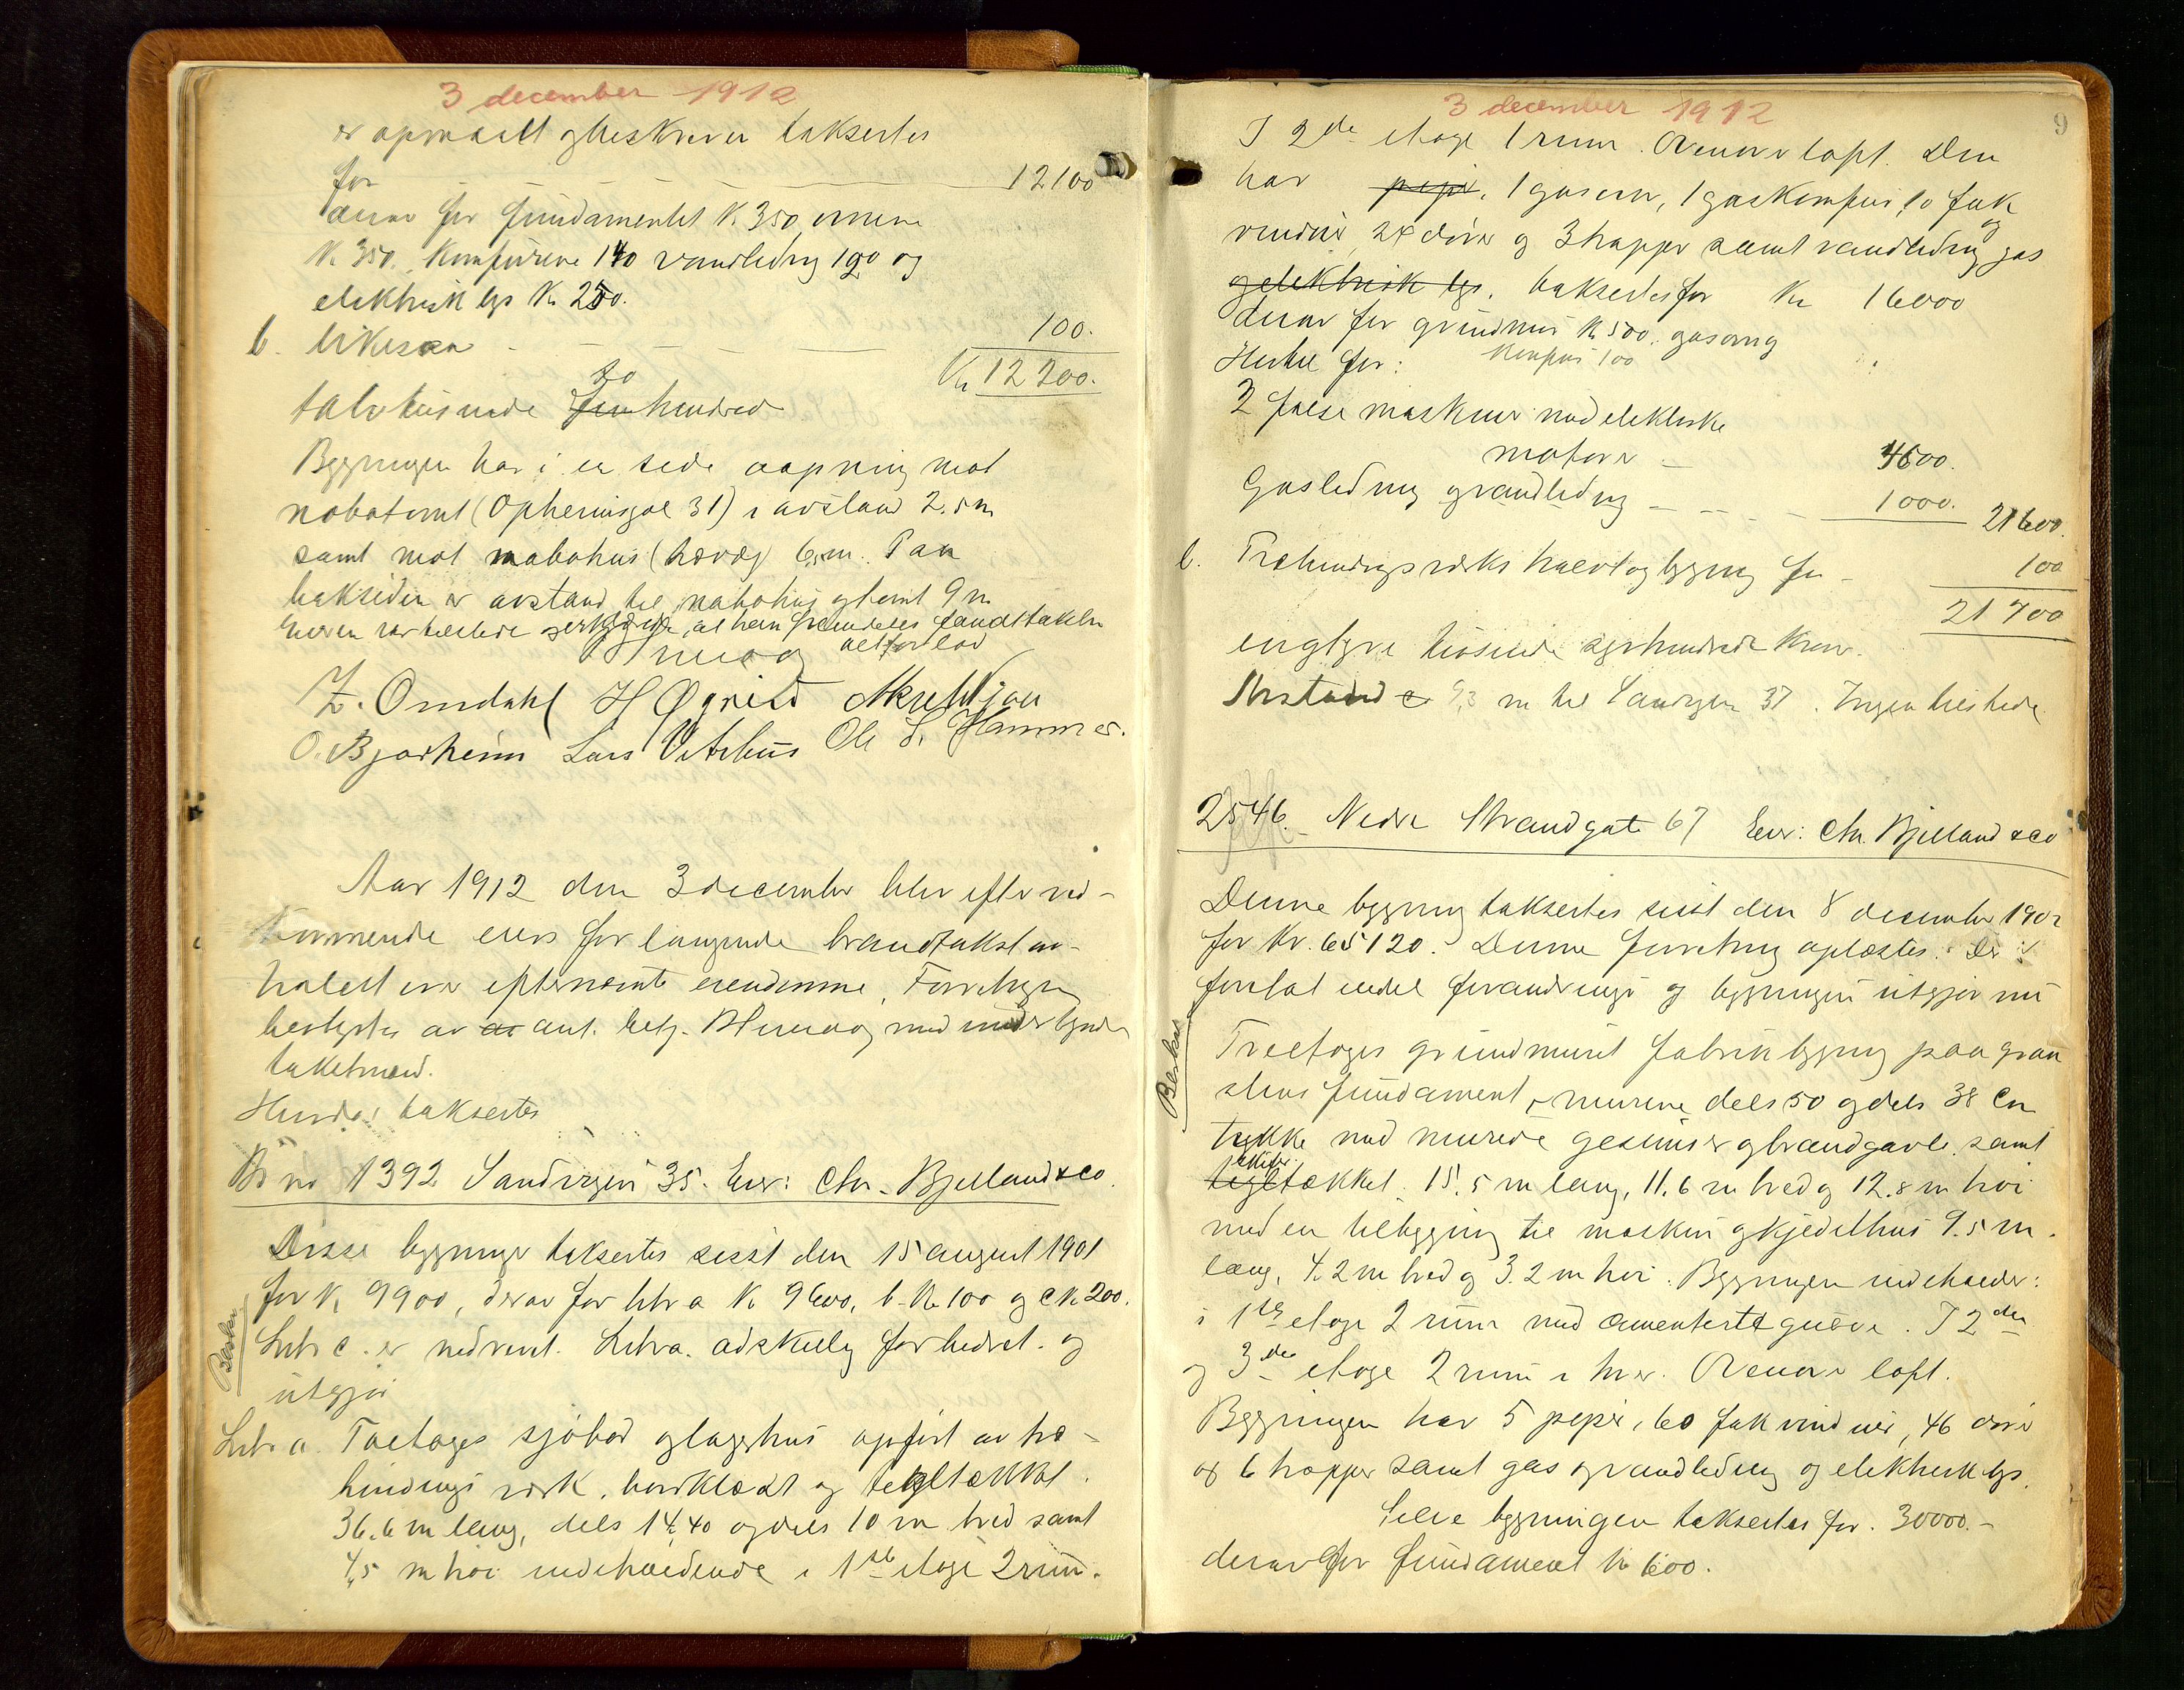 3 december 1912
er opmaalt og beskreven taksertes
for 12100
derav for fundamentet K. 350, ovnene
K 350. Komfurene 140 vandledng 190 og
elektrisk lys Kr 250.
b. likesaa 100.
Kr 12200.
to
tolvtusinde fem hundred
Bygningen har i en side aapning mot
nabotomt (Opheimsgae 31) i avstand 2.5 m
samt mot nabohus 6,5 m. Paa
baksiden er avstand til nabohus og tomt 9 m
Z. Omdahl H Øgreid
O. Bjorheim Lars Vetrhus Ole S. Hammer.
Aar 1912 den 3 december blev efter ved-
kommende eiers forlangende brandtakst av-
holdt over efternævnte eiendomme, Forretngen
bestyrtes av av ant. betj. med undertegnede
takstmænd.
Herder taksertes
Br no 1392 Sandvigen 35. Eier: Chr. Bjelland & Co.
Disse bygninger taksertes sisst den 15 august 1901
for K. 9900, derav for litr a K. 9600, b. Kr 100 og c K. 200.
Beskr
Litr c. er nedrevet. Litr a. adskillig forbedret. og
utgjør
Litr a. Toetages sjøbod og lagerhus opført av træ-
bindings verk, bordklædt og tegltækket.
36.6 m lang, dels 14,40 og dels 10 m bred samt
4,5 m høi indeholdende i 1ste etage 2 rum.
3 december 1912
9
I 2de etage 1 rum. Ovenover loft. Den
har piper, 1 gasovn, 1 gaskomfur, 10 fak
og
vinduer, 24 dører og 3 trapper samt vandledng gas
og elektrisk lys. taksertes for Kr 16000
derav for grundmur K 500. gasovn
Komfur 100
Hertil for:
2 false maskiner med elektriske
motorer 4600.
Gasledning og vandledng 1000. 21600.
b. Træbindingsverks bygning for 100
21700
enogtyve tusinde syvhundrede kroner.
Avstand 9,3 m til Sandvigen 37. Ingen tilstede
2546. Nedre Strandgate 67 Eier: Chr. Bjelland & Co
Denne bygning taksertes sisst den 8 december 1902
for Kr. 65120. Denne forretning oplæstes. Der er
foretat endel forandringer og bygningen utgjør nu
Beskr
Treetages grundmuret fabrikbygning paa graa
stens fundament, murene dels 50 og dels 38 cm
tykke med murede gesimser og brandgavle, samt
skifer
tegltækket. 15,5 m lang, 11.6 m bred og 12.8 m høi
med en tilbygging til maskin og kjedelhus 9.5 m.
lang, 4.2 m bred og 3.2 m høi. Bygningen indeholder:
i 1ste etage 2 rum med cementerte gulve. I 2den
og 3die etage 2 rum i hver. Ovenover loft.
Bygningen har 5 piper, 60 fak vinduer, 46 dører
og 6 trapper samt gas og vandledning og elektrisk lys.
Selve bygningen taksertes for. 30000.-
derav for fundament Kr 600.